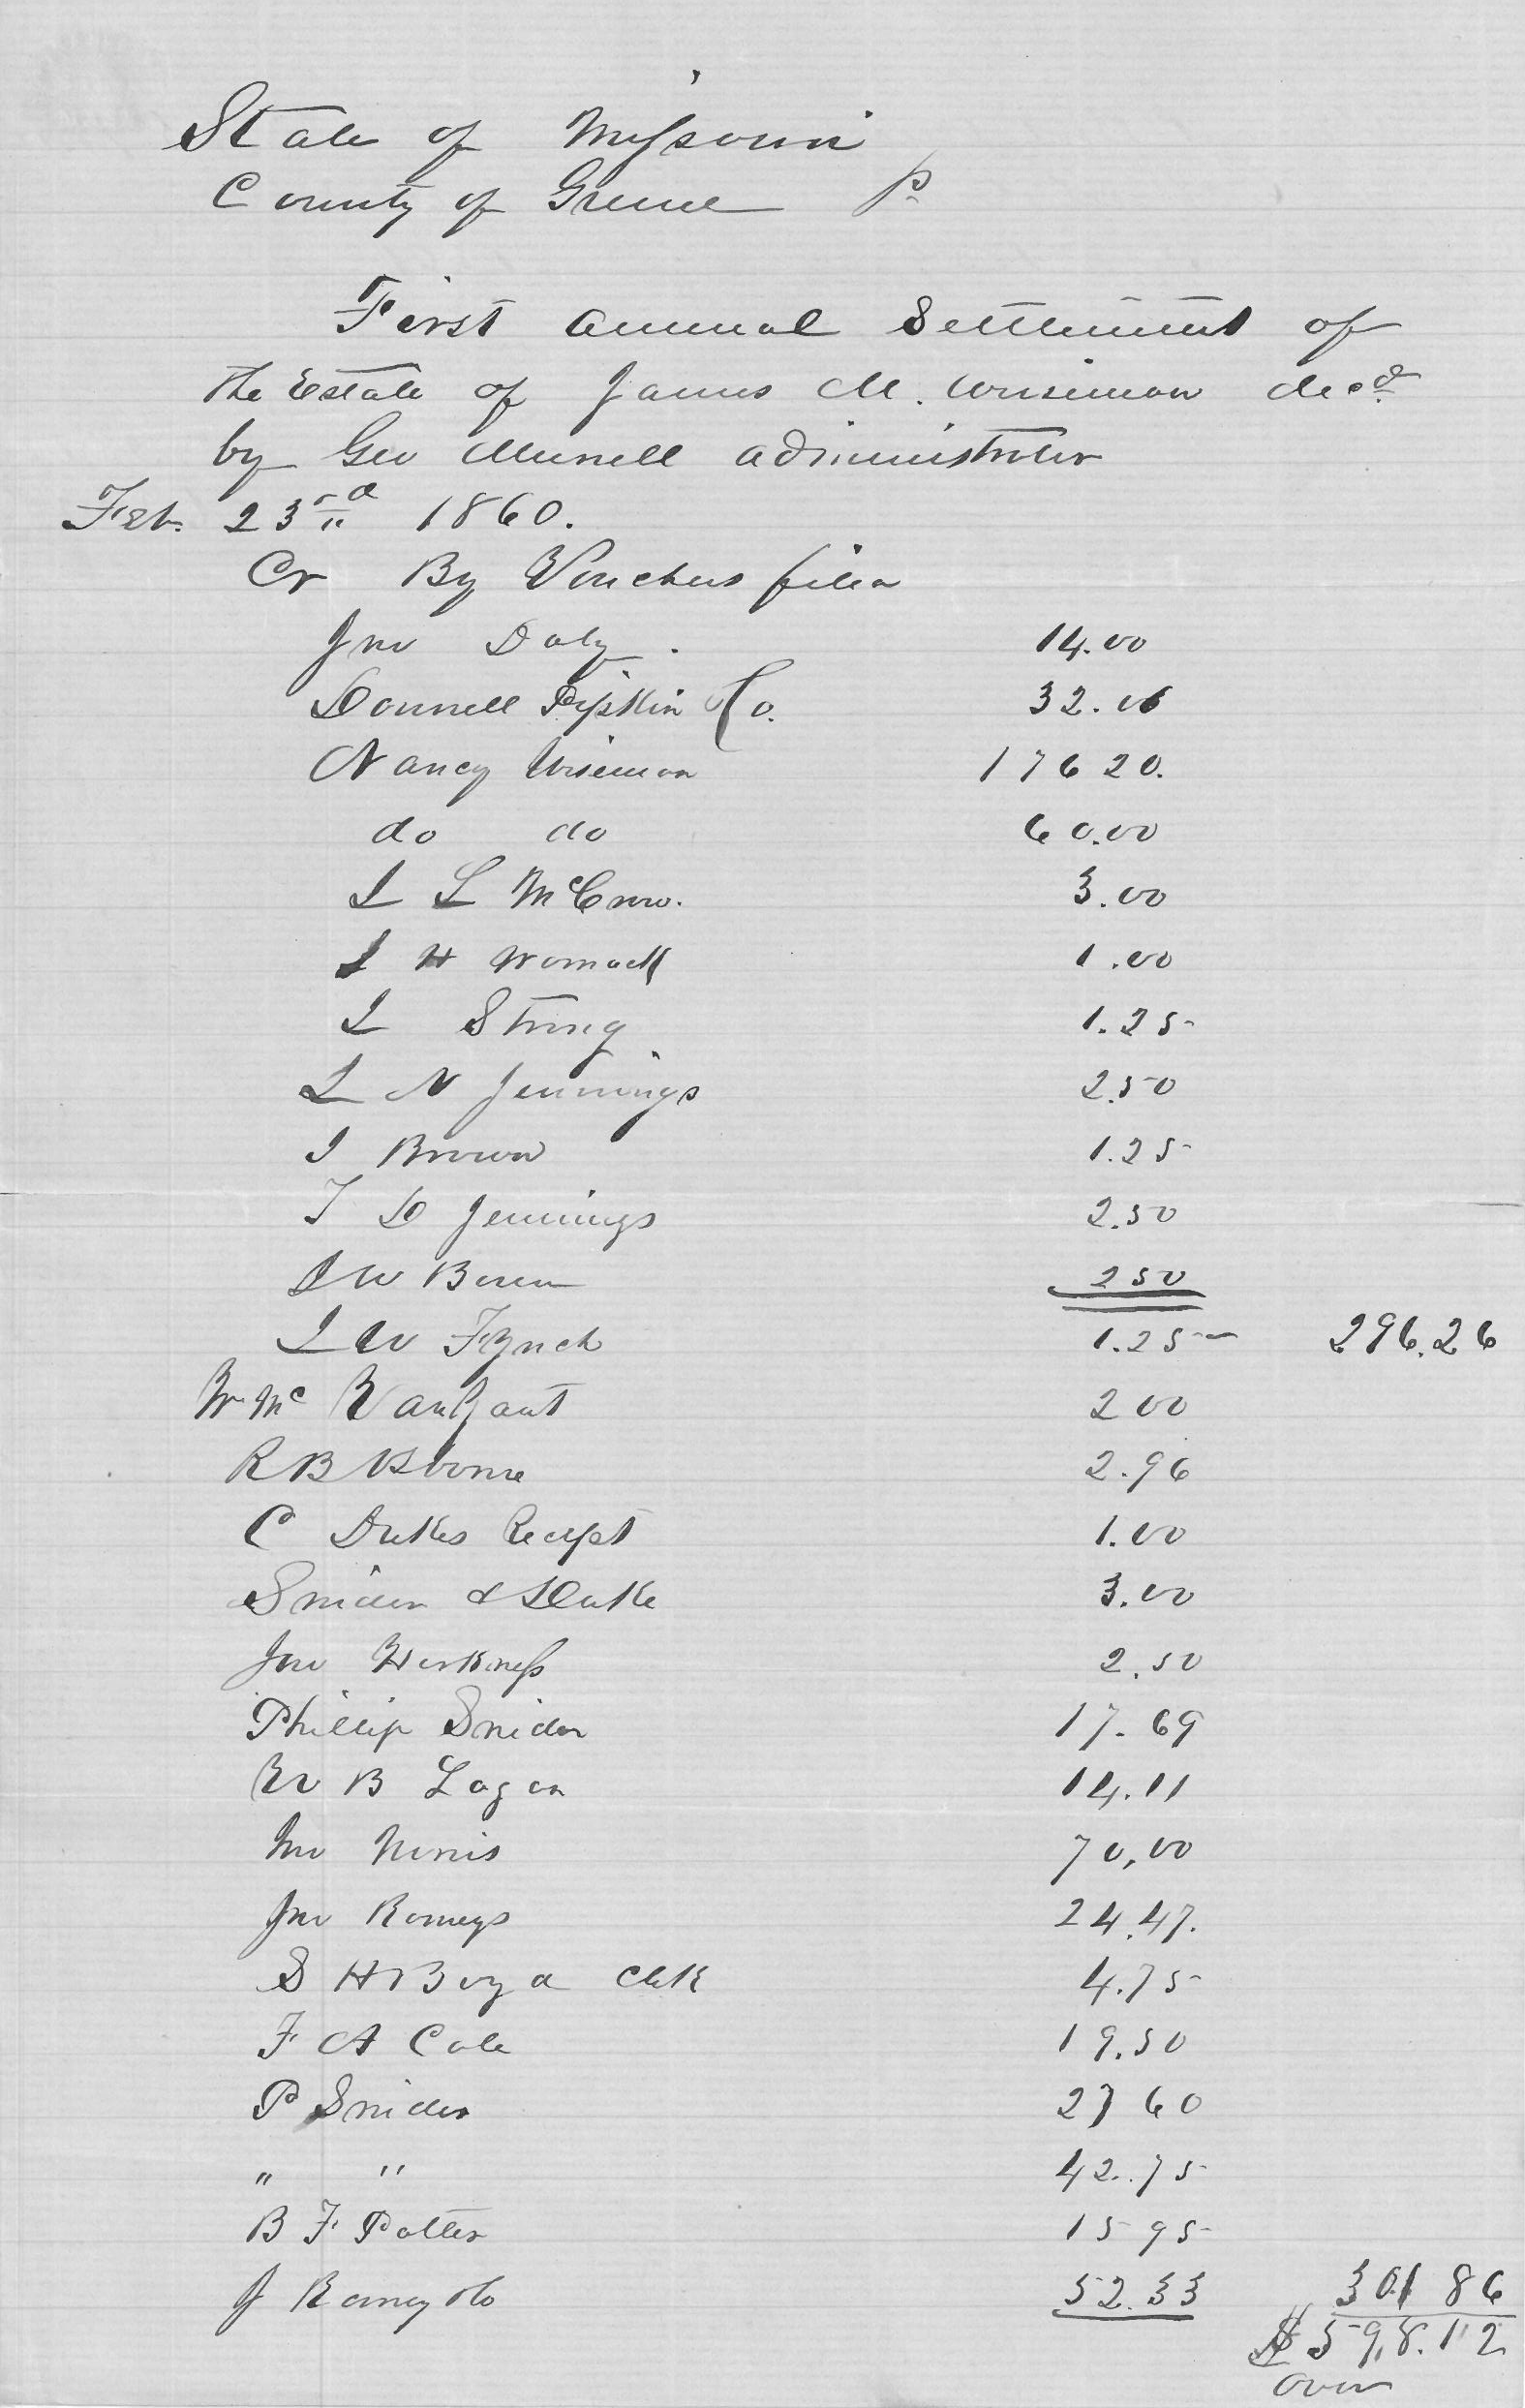 State of Missouri
County of Greene Ss.
First annual Settlement of
the Estate of James M. Wiseman decd.
by Geo Murrell administrator
Feb. 23rd 1860.
Cr By Vouchers filed
Jno Daly. 14.00
Donnell Pipkin Co. 32.06
Nancy Wiseman 176 20.
do do 60.00
L L McCraw. 3.00
L H Womack 1.00
L Strong 1.25
L N Jennings 2.50
J Brown 1.25
T D Jennings 2.50
J W Boren 2 50
L W Fynch 1.25 296.26
Wm Mc VanZant 2 00
R B Osborne 2.96
C Dukes Receipt 1.00
Snider & Duke 3.00
Jno Harkness 2.50
Phillip Snider 17.69
W B Logan 14.11
Jno Norris 70.00
Jno Rameys 24.47.
S H Boyd Clk 4.75
F A Cole 19.50
P Snider 27 60
" " 42.75
B F Potter 15 95
J Ramey 52.33 301 86
$ 598.12
over